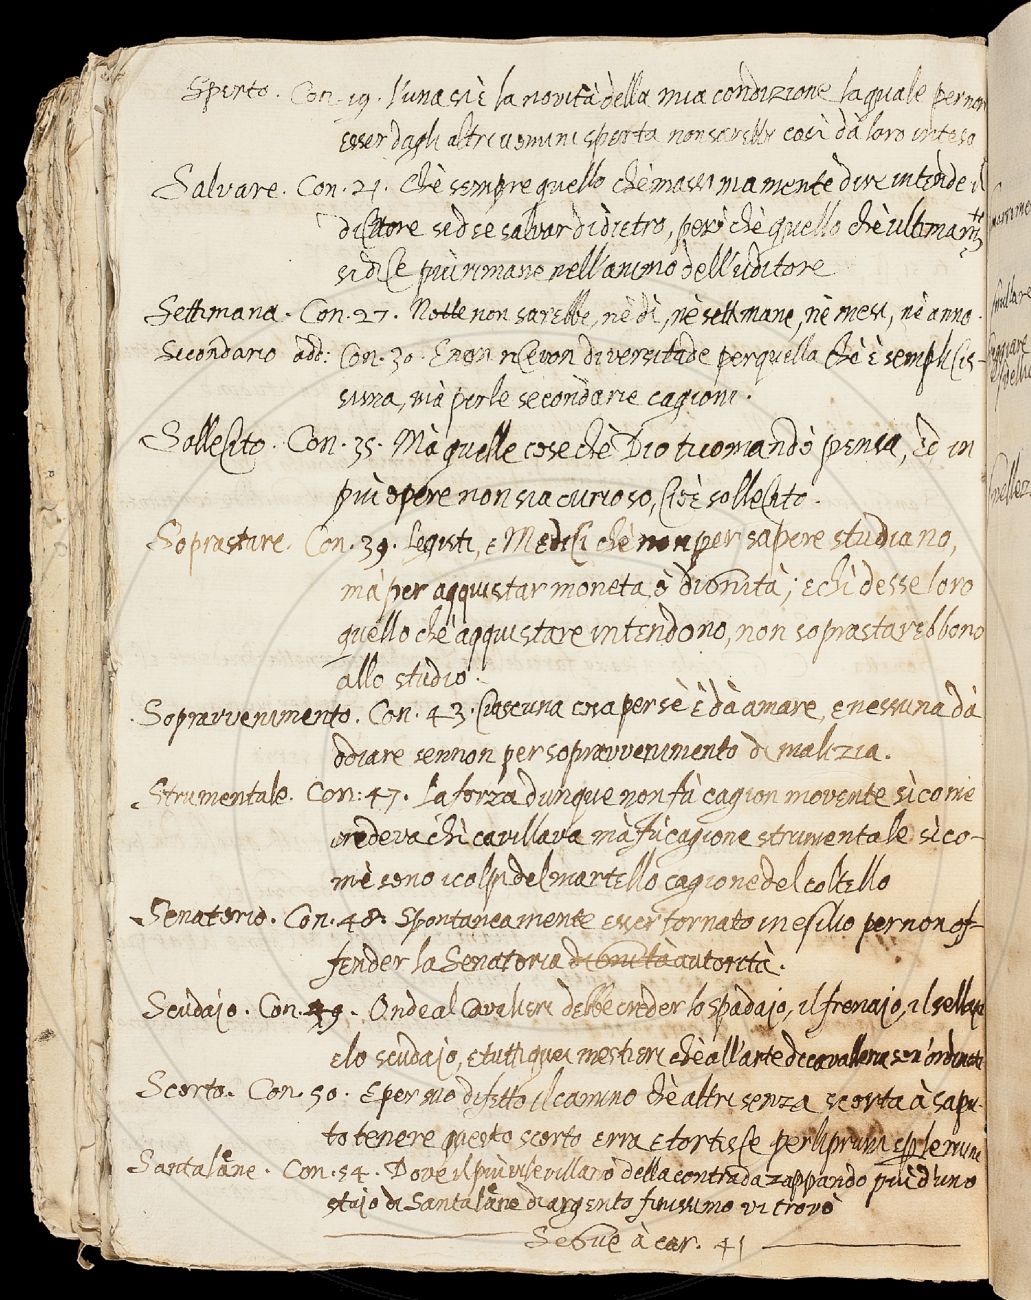 Sperto. Con. 19. L'una si è la novità della mia condizione la quale per non
esser dagli altri uomini sperta non sarebbe così da loro inteso
Salvare. Con. 21. Chè sempre quello chè massimamente dire intende il
dicitore si dee salvar di dietro, però chè quello chè ultimam.te
si dice più rimane nell'animo dell'uditore
Settimana. Con. 27. Notte non sarebbe, nè dì, nè settimane, nè mesi, nè anno.
Secondario add: Con. 30. E non ricevon diversitade per quella chè è semplicis-
sima, mà per le secondarie cagioni.
Sollecito. Con. 35. Mà quelle cose chè Dio ti comandò pensa, ed in
più opere non sia curioso, cioè sollecito.
Soprastare. Con. 39. Legisti, e Medici chè non per sapere studiano,
mà per acquistar moneta, ò dignità; e chi desse loro
quello che acquistare intendono, non soprastarebbono
allo studio.
Sopravvenimento. Con. 43. Ciascuna cosa per sè è dà amare, e nessuna dà
odiare sennon per sopravvenimento di malizia.
Strumentale. Con: 47. La forza dunque non fù cagion movente sì come
credeva chi cavillava mà fù cagione strumentale sì co-
mè sono i colpi del martello cagione del coltello
Senatorio. Con. 48. Spontaneamente esser tornato in esilio per non of-
fender la Senatoria dignità autorità.
Scudajo. Con. 49. Onde al Cavaliere debbe creder lo spadajo, il frenajo, il sellajo
e lo scudajo, e tutti quei mestieri chè all'arte di cavalleria son' ordinati
Scorto. Con. 50. E per suo difetto il camino chè altri senza scorta à sapu-
to tenere questo scorto erra e tortisce per li pruni e per le ruine
Santalène. Con. 54. Dove il più vile villano della contrada zappando più d'uno
stajo di Santalène di argento finissimo vi trovò
Segue à car. 41